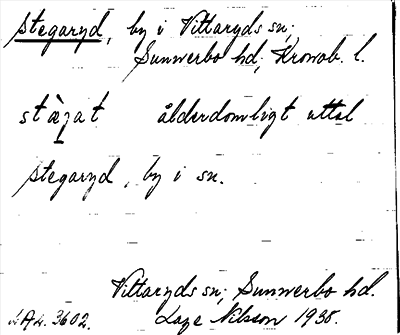 Stegaryd, by i Vittaryds sn;
Sunnerbo hd; Kronob. l.
ålderdomligt uttal
Stegaryd, by i sn.
Vittaryds sn; Sunnerbo hd.
3602. Nilsson 1938.